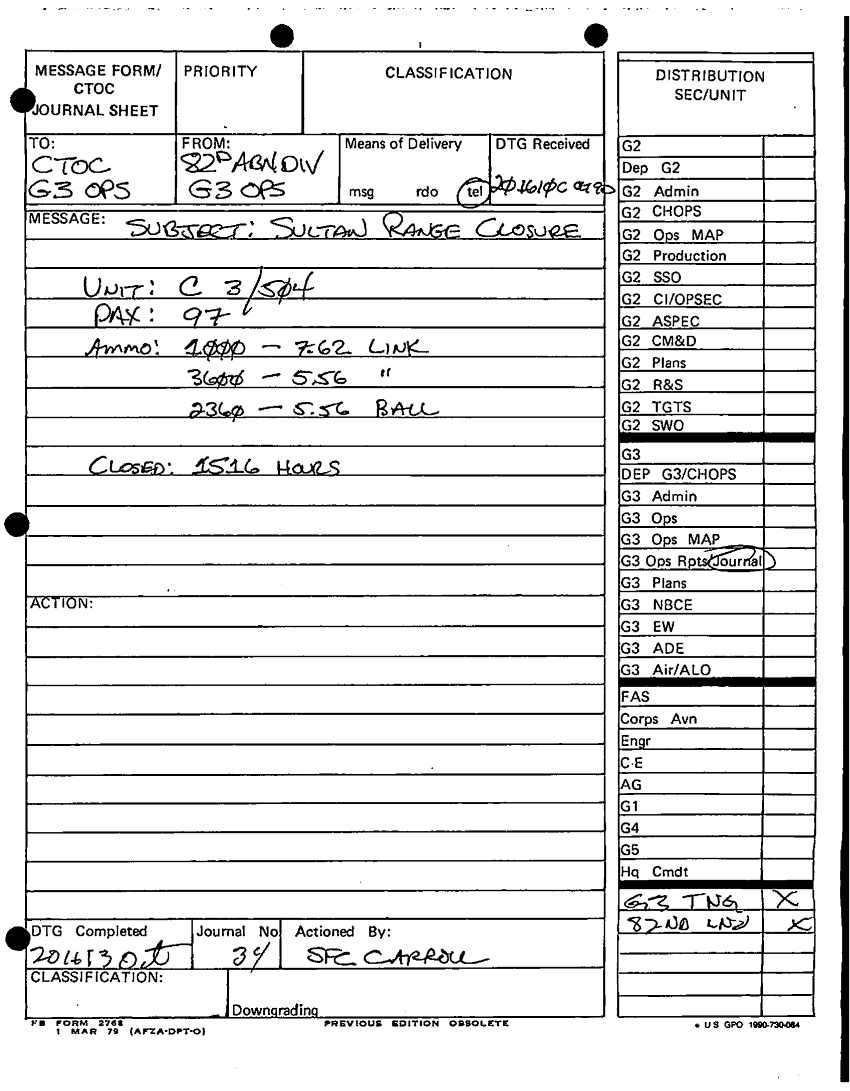 MESSAGE FORM/
CTOC
JOURNAL SHEET
PRIORITY
CLASSIFICATION
TO:
CTOC
G3 OPS
FROM:
82D ABN DIV
G3 OPS
Means of Delivery
msg rdo tel
DTG Received
201610C
MESSAGE: SUBJECT: SULTAN RANGE CLOSURE
UNIT: C 3/504
PAX: 97
Ammo: 1000 — 7.62 LINK
3600 — 5.56 "
2360 — 5.56 BALL
CLOSED: 1516 HOURS
ACTION:
DTG Completed
Journal No
34
Actioned By:
SFC CARROLL
CLASSIFICATION:
Downgrading
FB FORM 2768
1 MAR 79 (AFZA-DPT-O)
PREVIOUS EDITION OBSOLETE
DISTRIBUTION
SEC/UNIT
G2
Dep G2
G2 Admin
G2 CHOPS
G2 Ops MAP
G2 Production
G2 SSO
G2 CI/OPSEC
G2 ASPEC
G2 CM&D
G2 Plans
G2 R&S
G2 TGTS
G2 SWO
G3
DEP G3/CHOPS
G3 Admin
G3 Ops
G3 Ops MAP
G3 Ops Rpts/Journal
G3 Plans
G3 NBCE
G3 EW
G3 ADE
G3 Air/ALO
FAS
Corps Avn
Engr
C-E
AG
G1
G4
G5
Hq Cmdt
G3 TNG X
82ND LNO X
* US GPO 1990-730-084